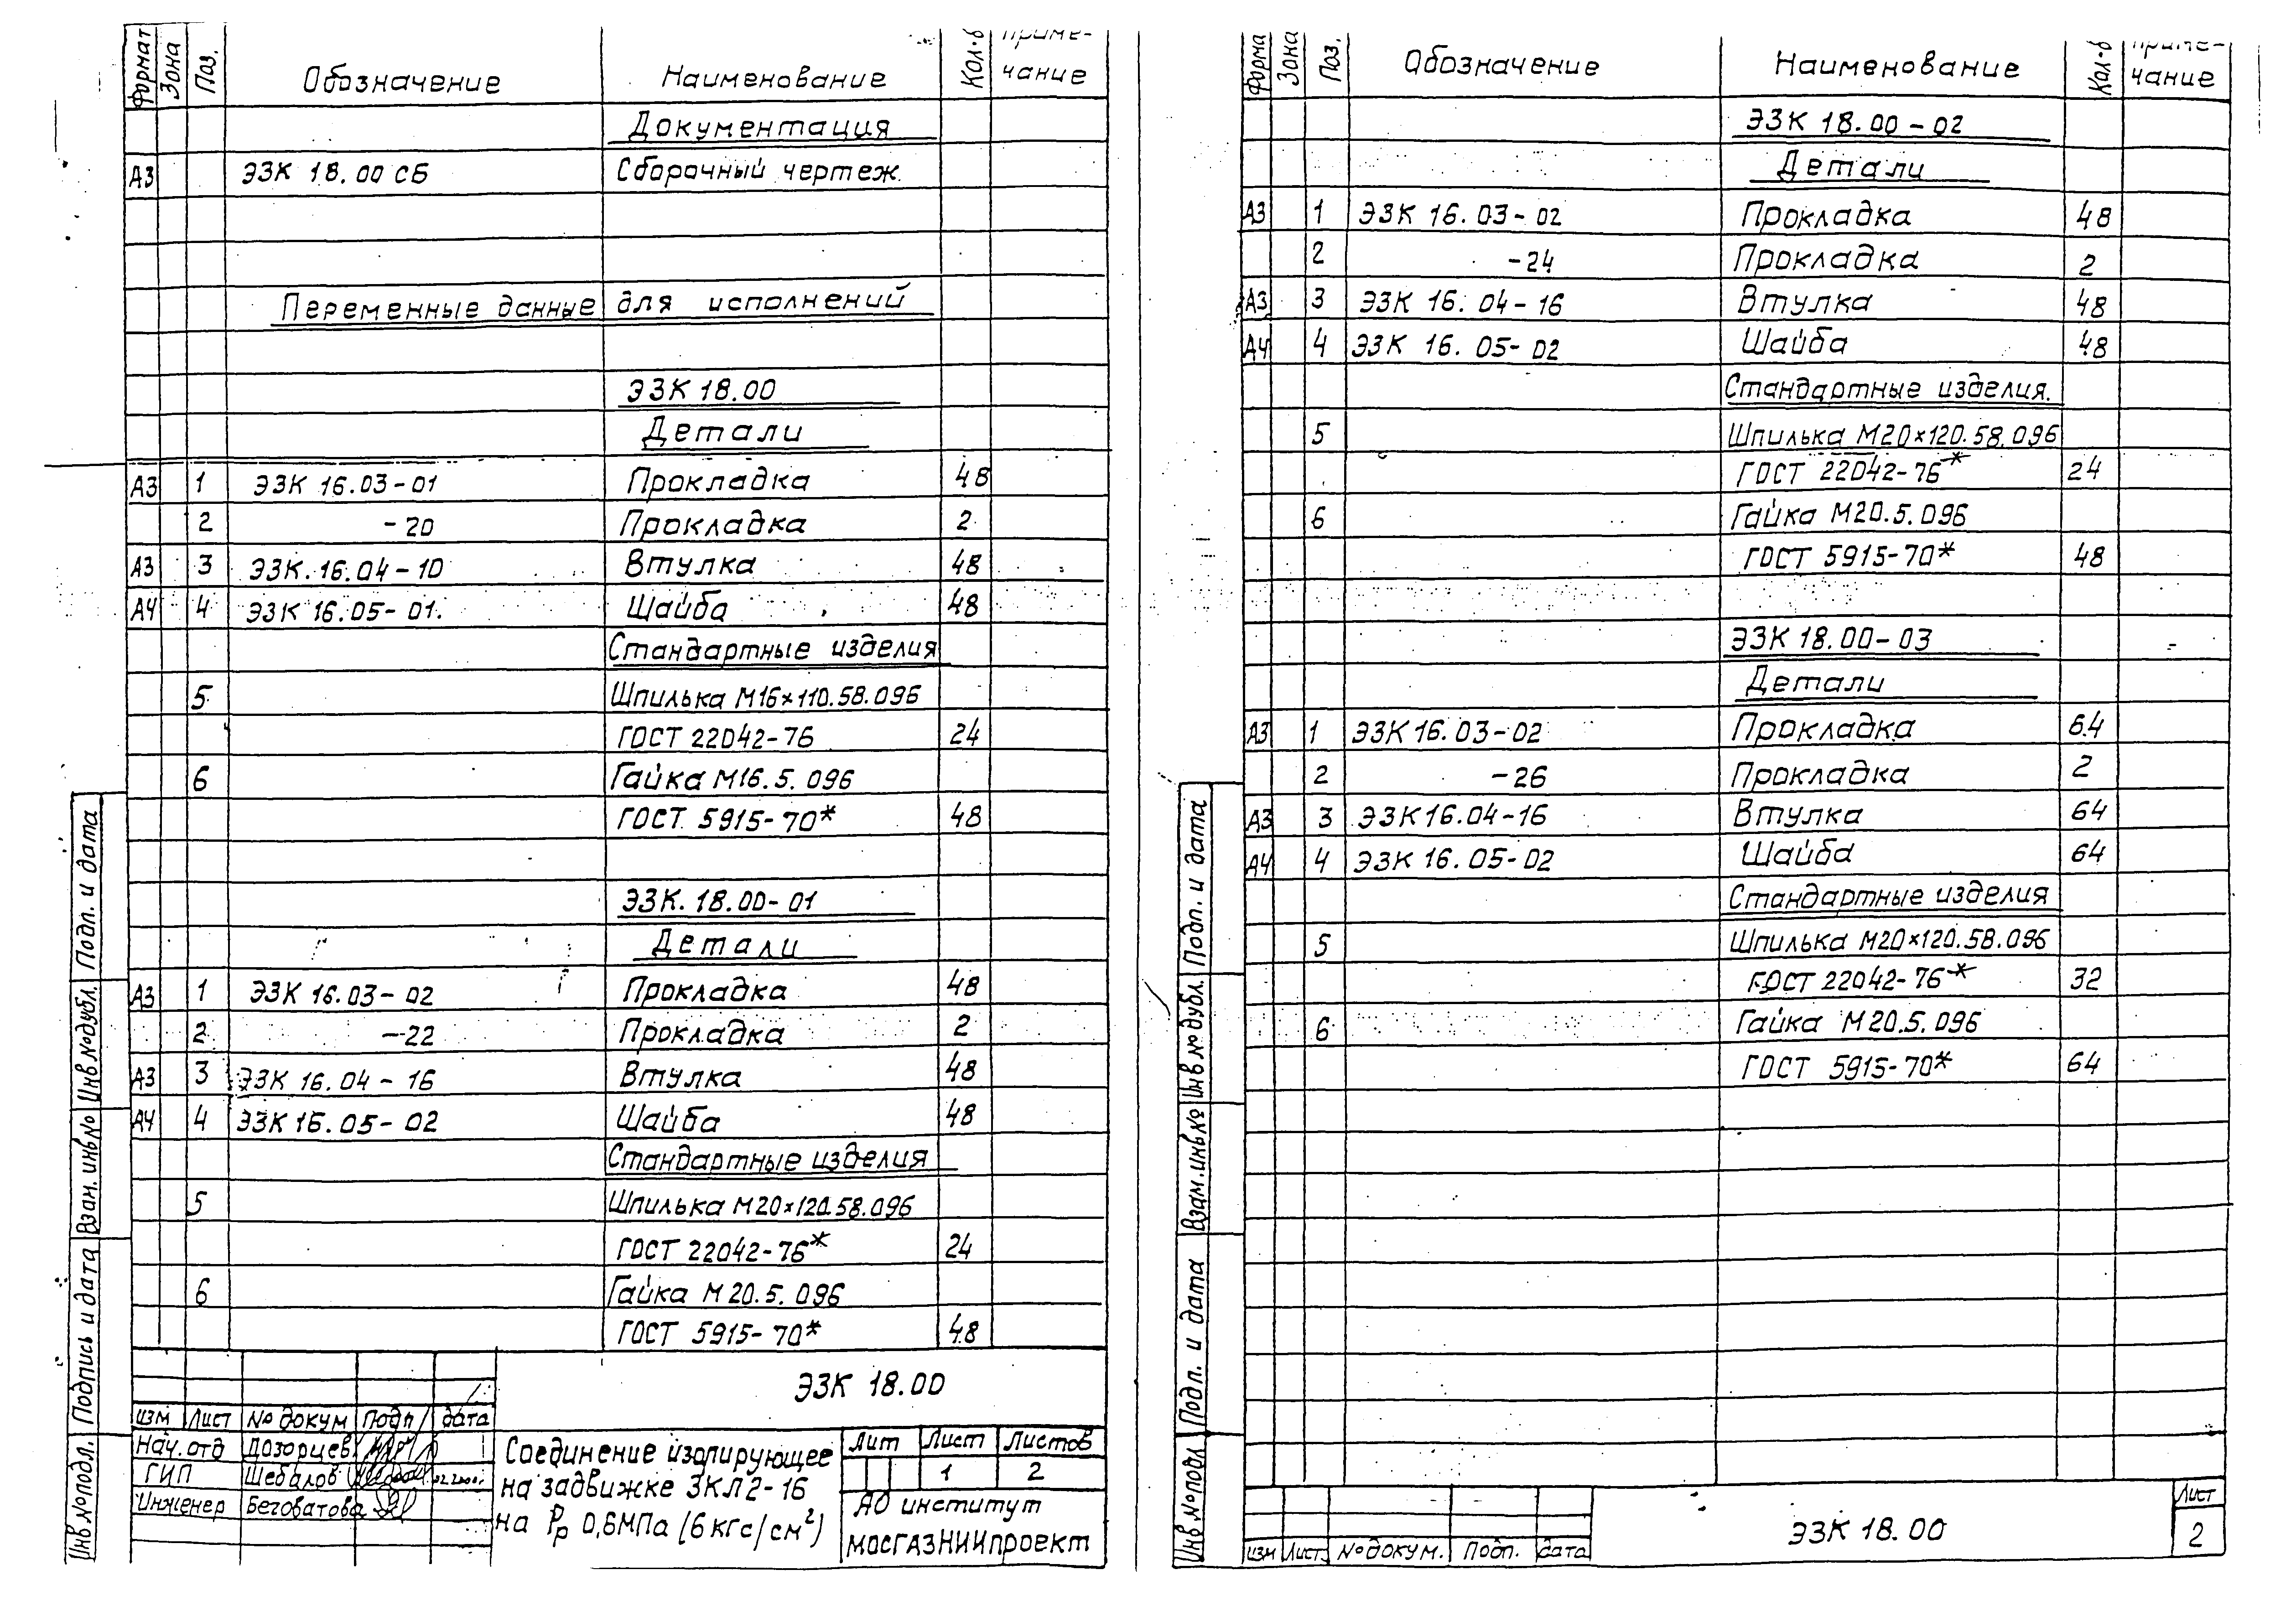 Формат Зона Поз. Обозначение Наименование Кол-в Приме-
чание
Документация
А3 ЭЗК 18.00 СБ Сборочный чертеж.
Переменные данные для исполнений
ЭЗК 18.00
Детали
А3 1 ЭЗК 16.03-01 Прокладка 48
2 -20 Прокладка 2
А3 3 ЭЗК.16.04-10 Втулка 48
А4 4 ЭЗК 16.05-01. Шайба 48
Стандартные изделия
5 Шпилька М16×110.58.096
ГОСТ 22042-76 24
6 Гайка М16.5.096
ГОСТ 5915-70* 48
ЭЗК.18.00-01
Детали
А3 1 ЭЗК 16.03-02 Прокладка 48
2 -22 Прокладка 2
А3 3 ЭЗК 16.04-16 Втулка 48
А4 4 ЭЗК 16.05-02 Шайба 48
Стандартные изделия
5 Шпилька М20×120.58.096
ГОСТ 22042-76* 24
6 Гайка М20.5.096
ГОСТ 5915-70* 48
ЭЗК 18.00
изм Лист № докум Подп дата
Нач. отд Дозорцев
ГИП Шебалов
Инженер Беговатова
Соединение изолирующее
на задвижке ЗКЛ2-16
на Рр 0,6МПа (6 кгс/см²)
Лит Лист Листов
1 2
АО институт
МОСГАЗНИИпроект
Подп. и дата
Инв № дубл.
Взан. инв №
Подпись и дата
Инв № подл.
Форма Зона Поз. Обозначение Наименование Кол-в Приме-
чание
ЭЗК 18.00-02
Детали
А3 1 ЭЗК 16.03-02 Прокладка 48
2 -24 Прокладка 2
А3 3 ЭЗК 16.04-16 Втулка 48
А4 4 ЭЗК 16.05-02 Шайба 48
Стандартные изделия.
5 Шпилька М20×120.58.096
ГОСТ 22042-76* 24
6 Гайка М20.5.096
ГОСТ 5915-70* 48
ЭЗК 18.00-03
Детали
А3 1 ЭЗК 16.03-02 Прокладка 64
2 -26 Прокладка 2
А3 3 ЭЗК 16.04-16 Втулка 64
А4 4 ЭЗК 16.05-02 Шайба 64
Стандартные изделия
5 Шпилька М20×120.58.096
ГОСТ 22042-76* 32
6 Гайка М20.5.096
ГОСТ 5915-70* 64
изм Лист № докум. Подп. дата
ЭЗК 18.00
Лист
2
Подп. и дата
Инв № дубл.
Взам. инв №
Подп. и дата
Инв № подл